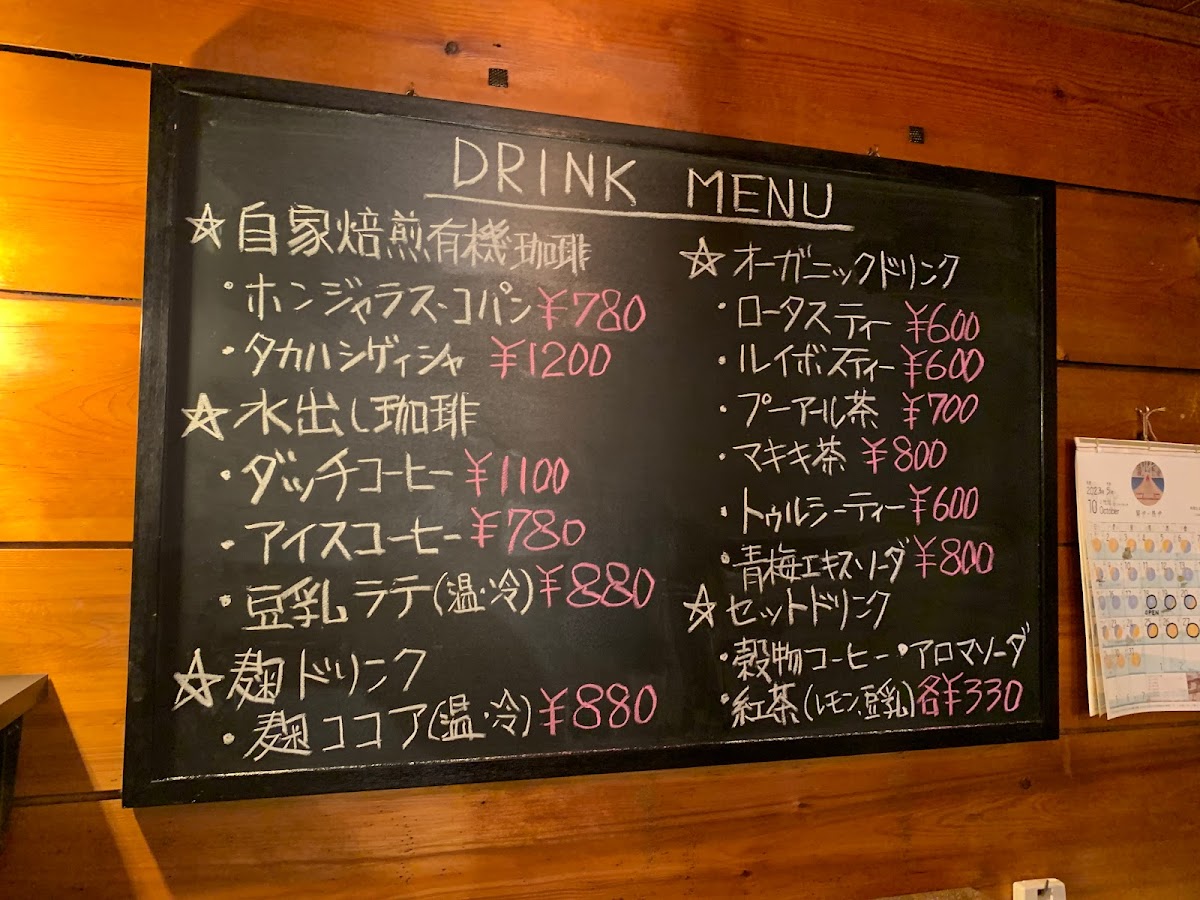 DRINK MENU
☆自家焙煎有機珈琲
・ホンジャラス・コパン¥780
・タカハシゲイシャ ¥1200
☆水出し珈琲
・ダッチコーヒー¥1100
・アイスコーヒー¥780
・豆乳ラテ(温・冷)¥880
☆麹ドリンク
・麹ココア(温・冷)¥880
☆オーガニックドリンク
・ロータスティー ¥600
・ルイボスティー¥600
・プーアール茶 ¥700
・マキキ茶 ¥800
・トゥルシーティー¥600
・青梅エキスソーダ¥800
☆セットドリンク
・穀物コーヒー・アロマソーダ
・紅茶(レモン、豆乳)各¥330
10 October
OPEN